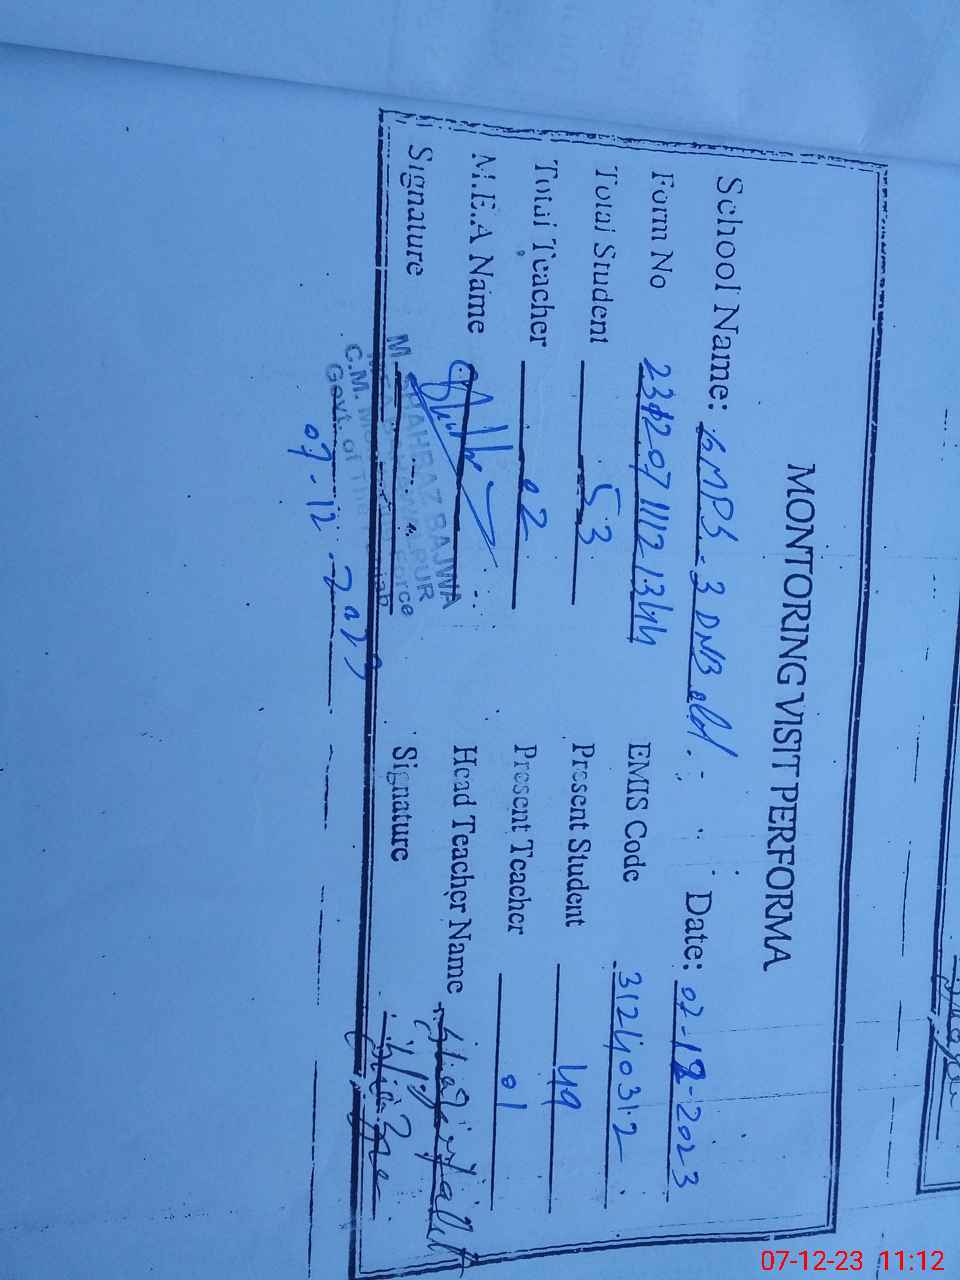 MONTORING VISIT PERFORMA
School Name: GMPS-3 DNB old. Date: 07-12-2023
Form No 2312071112 1344 EMIS Code 31240312
Total Student 53 Present Student 49
Total Teacher 02 Present Teacher 01
M.E.A Name Head Teacher Name
Signature Signature
SHAHBAZ BAJWA
C.M.
Govt. of
07-12-2023
07-12-23 11:12